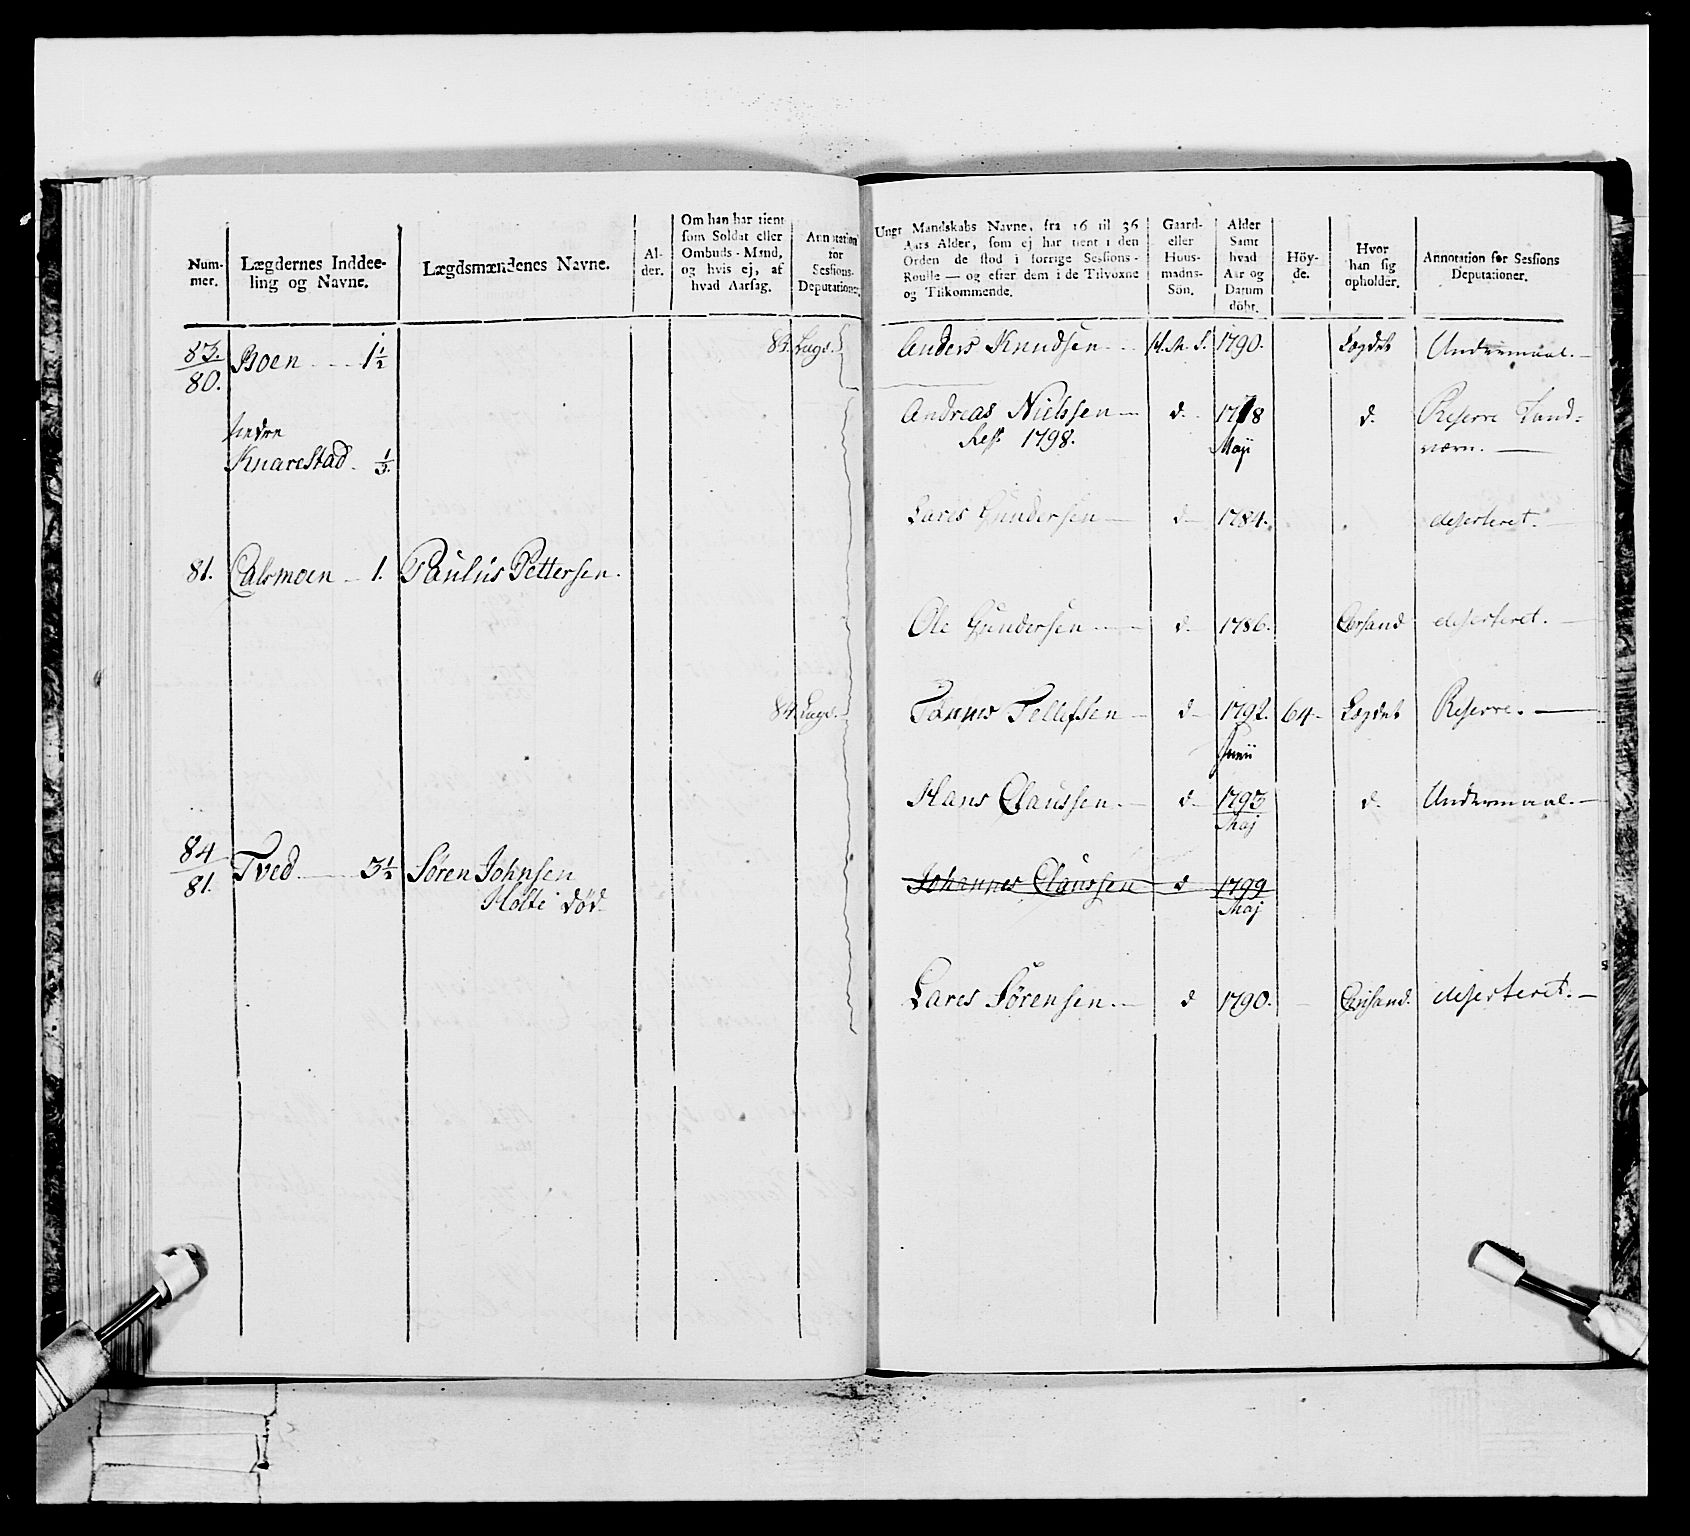 Num-
mer.
Lægdernes Inddee-
ling og Navne.
Lægdsmændenes Navne.
Al-
der.
Om han har tient
som Soldat eller
Ombuds-Mand,
og hvis ej, af
hvad Aarsag.
Annotation
for
Sessions-
Deputationer.
83.
80.
Boen 1 1/2
83. Lægd.
søndre
Knarestad. 1/3.
81. Calsmoen 1. Paulus Pettersen.
84. Lægd.
84
81.
Tved 3 1/2 Søren Johnsen
Holte død
Ungt Mandskabs Navne, fra 16 til 36
Aars Alder, som ej har tient i den
Orden de stod i forrige Sessions-
Roulle — og efter dem i de Tilvoxne
og Tilkommende.
Gaard-
eller
Huus-
mands-
Sön.
Alder
Samt
hvad
Aar og
Datum
döbt.
Höy-
de.
Hvor
han sig
opholder.
Annotation for Sessions
Deputationer.
Anders Knudsen H. M. S. 1790. Lægdet Undermaal.
Andreas Nielssen d. 1778 d. Reserve Land-
1798. Maji værn.
Lares Gundersen d 1784. deserteret.
Ole Gundersen d 1786. Chrsand deserteret.
Tønnes Tellefsen d 1792. 64 Lægdet Reserve.
Junii
Hans Claussen d 1793 d. Undermaal.
Maj
Johannes Claussen d 1799
Maj
Lares Sørensen d 1790. Chrisand. deserteret.